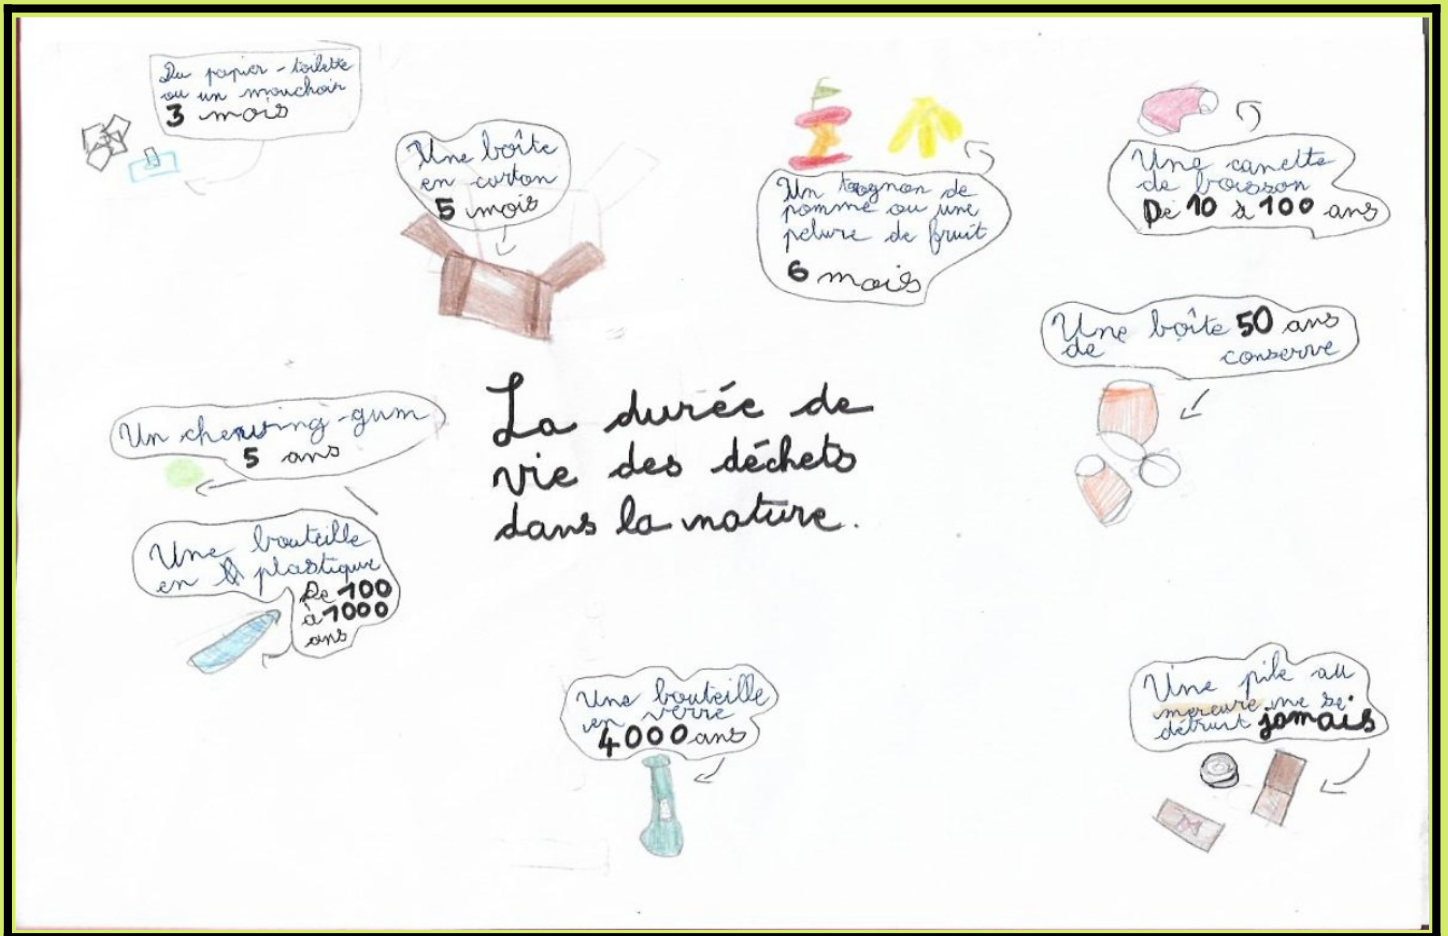 Du papier-toilette
ou un mouchoir
3 mois
Une boîte
en carton
5 mois
Un trognon de
pomme ou une
pelure de fruit
6 mois
Une canette
de boisson
De 10 à 100 ans
Une boîte 50 ans
de conserve
Un chewing-gum
5 ans
La durée de
vie des déchets
dans la nature.
Une bouteille
en plastique
De 100
à 1000
ans
Une bouteille
en verre
4000 ans
Une pile au
mercure ne se
détruit jamais